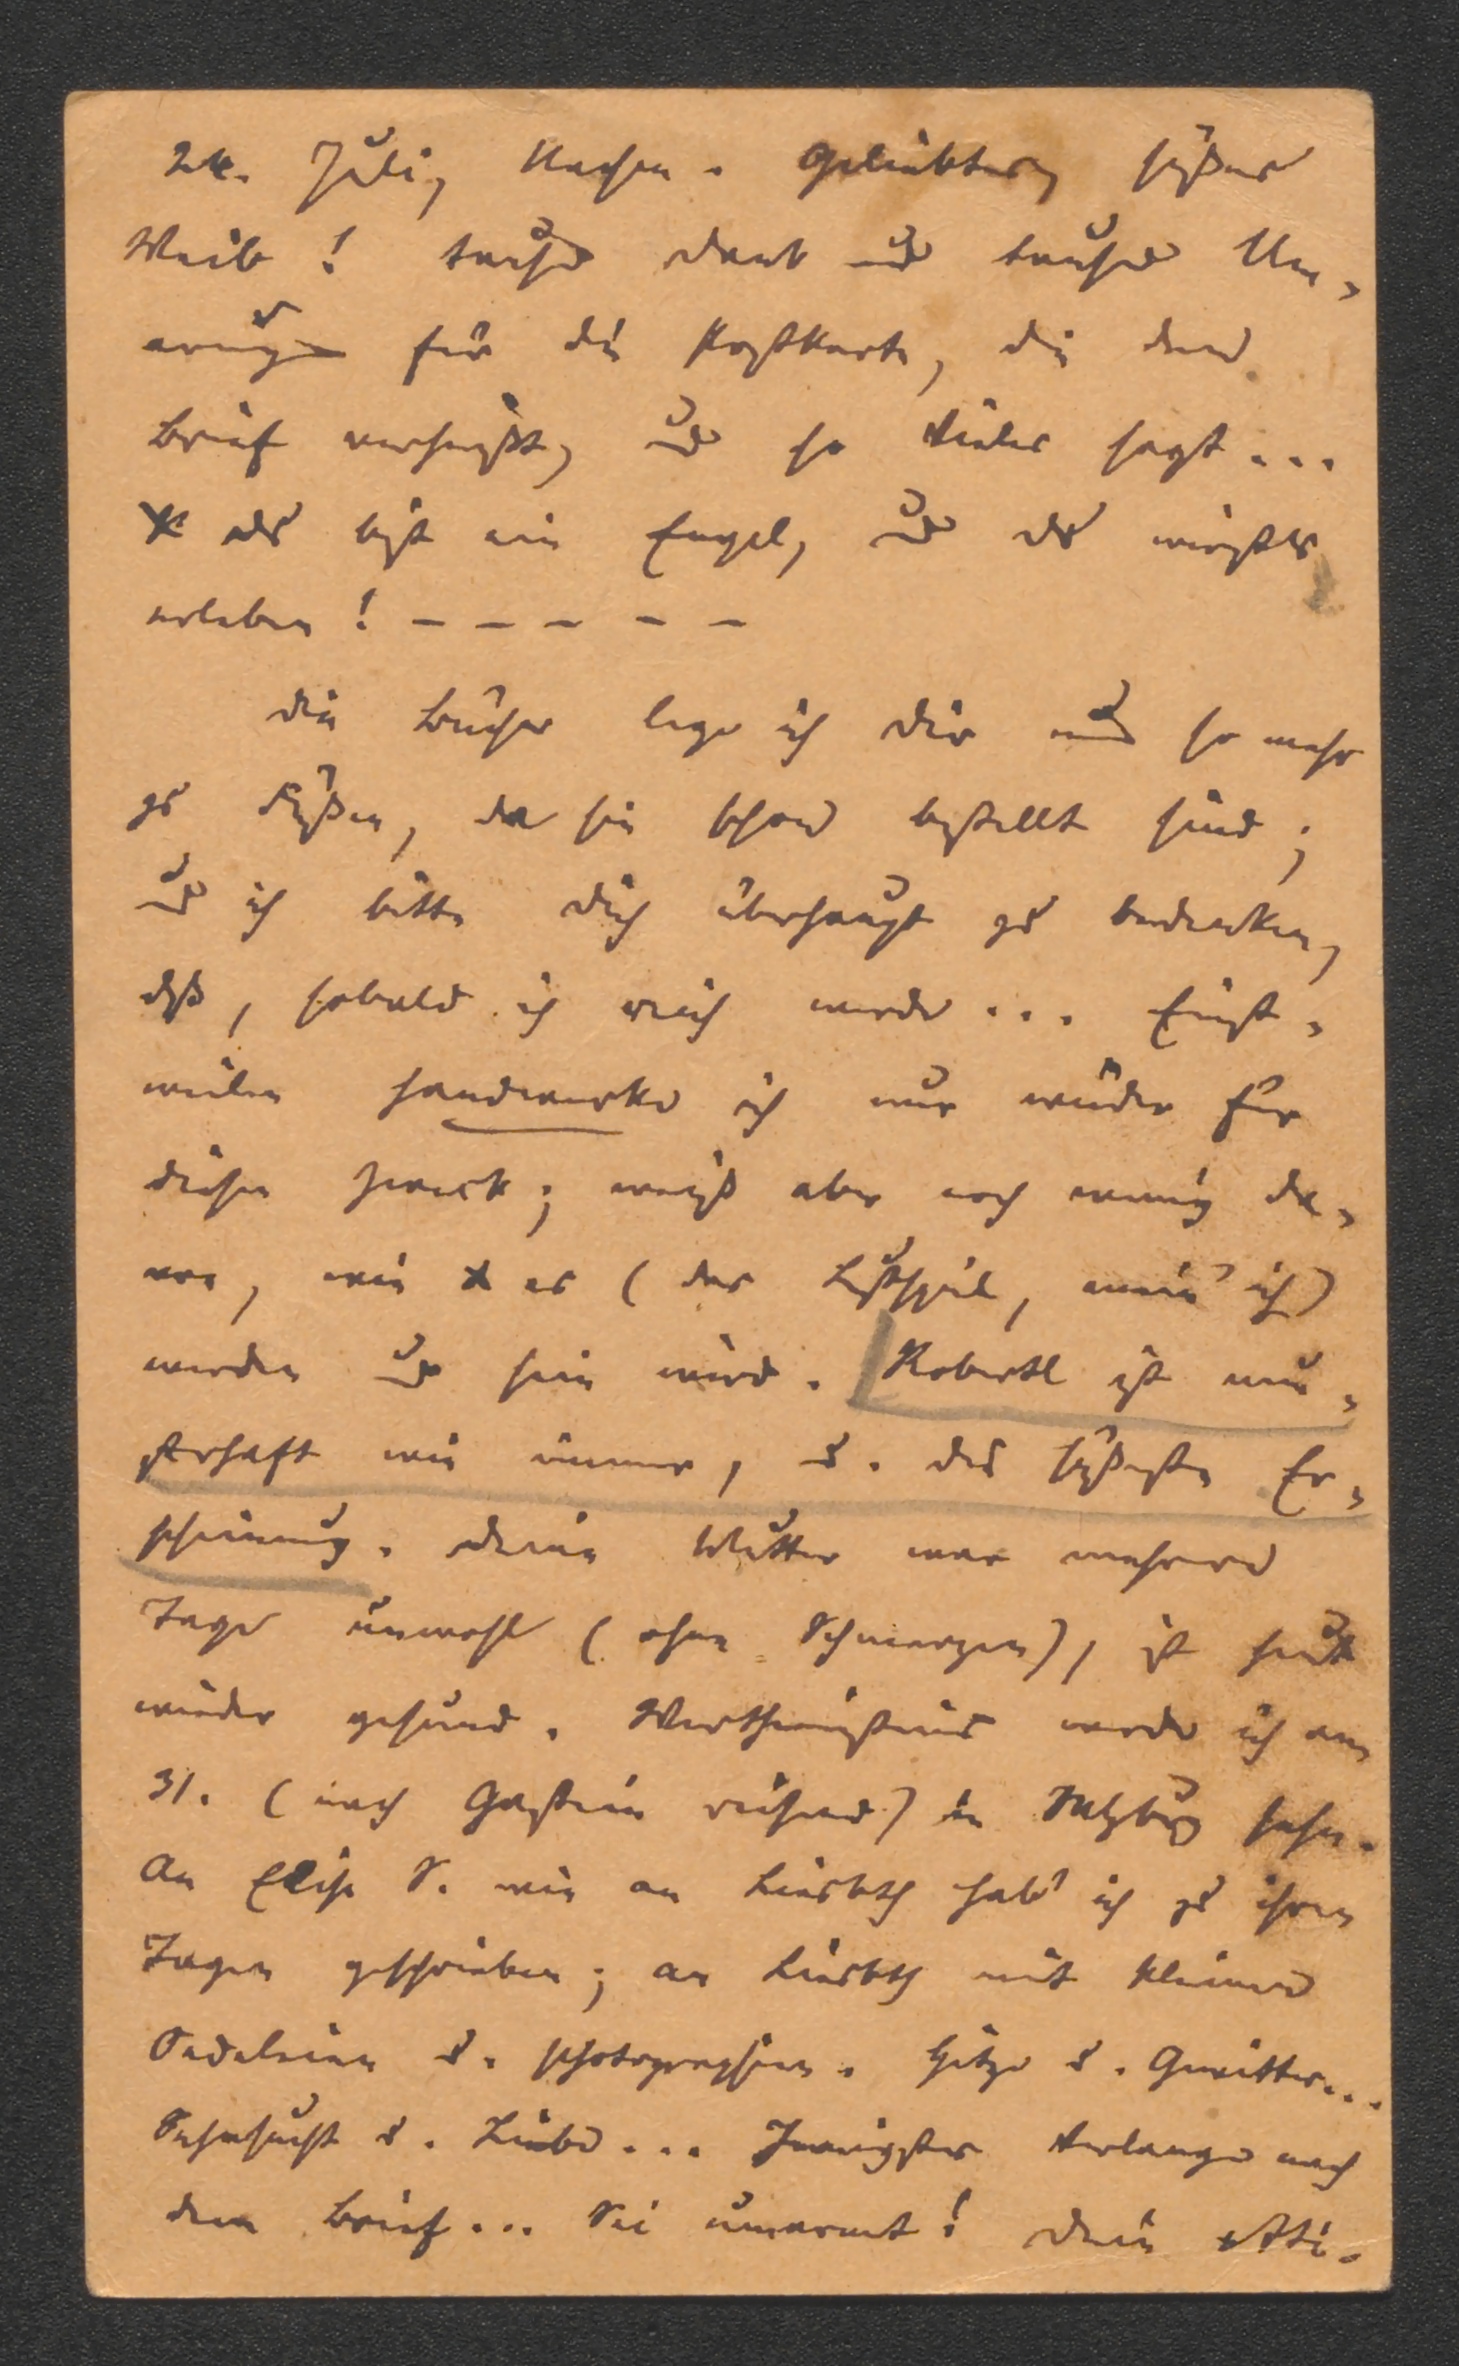 24. Juli, Aachen. Geliebtes, süßes
Weib! tausend Dank und tausend Um-
armungen für die Postkarte, die den
Brief verheißt, und so Vieles sagt...
du bist ein Engel, und du wirst's
erleben! – – – – –
Die Bücher lege ich dir um so mehr
zu Füßen, da sie schon bestellt sind;
und ich bitte dich überhaupt zu bedenken,
daß, sobald ich reich werde... Einst-
weilen handwerke ich nur wieder für
diesen Zweck; weiß aber noch wenig da-
von, wie es (das Lustspiel, mein' ich)
werden und sein wird. Robertl ist mu-
sterhaft wie immer, u. die süßeste Er-
scheinung. Deine Mutter war mehrere
Tage unwohl (ohne Schmerzen), ist heute
wieder gesund. Wertheimsteins werde ich am
31. (nach Gastein reisend) in Salzburg sehen.
An Elise S. wie an Liesbeth hab' ich zu ihren
Tagen geschrieben; an Liesbeth mit kleinen
u. Photographien. Hitze u. Gewitter...
Sehnsucht u. Liebe... Innigstes Verlangen nach
dem Brief... Sei umarmt! Dein Adi.